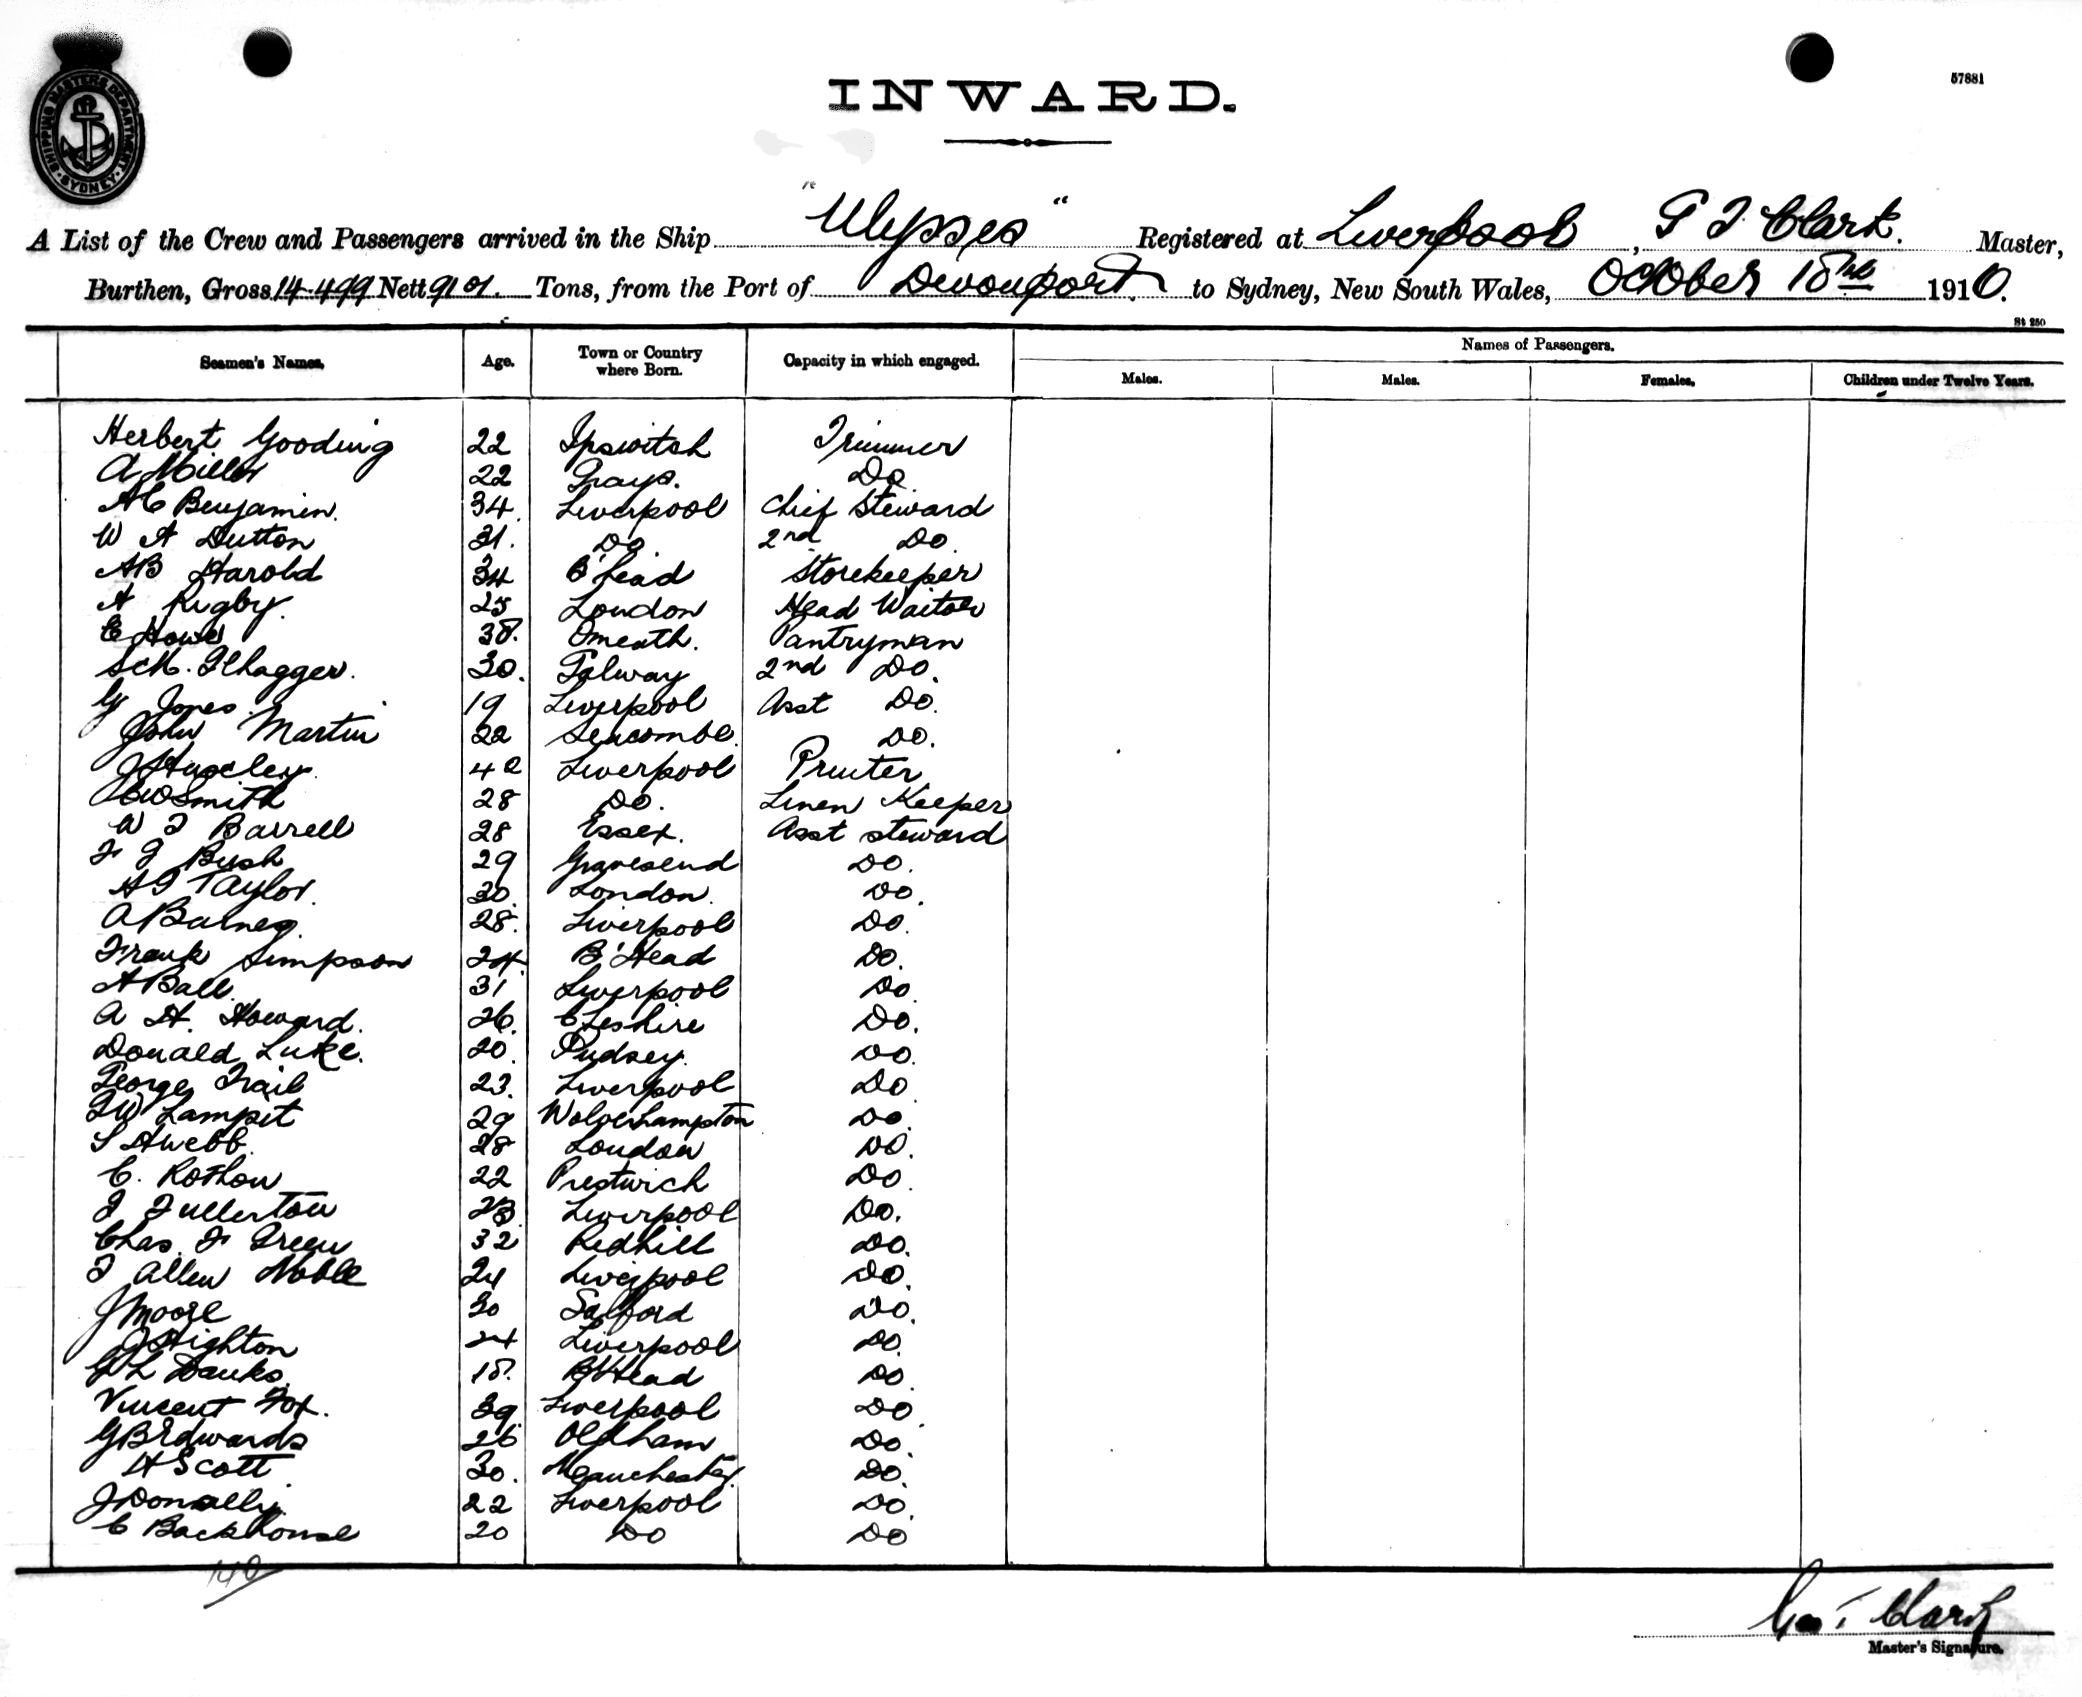 SHIPPING MASTERS DEPARTMENT SYDNEY
57881
INWARD.
A List of the Crew and Passengers arrived in the Ship "Ulysses" Registered at Liverpool, G T Clark. Master,
Burthen, Gross 14.499 Nett 9101. Tons, from the Port of Devonport. to Sydney, New South Wales, October 18th 1910.
St 250
Seamen's Names. Age. Town or Country where Born. Capacity in which engaged. Names of Passengers.
Males. Males. Females. Children under Twelve Years.
Herbert Gooding 22 Ipswitch Trimmer
A Miller 22 Grays. Do
A C Benjamin. 34. Liverpool Chief Steward
W A Dutton 31. Do 2nd Do.
A B Harold 34 B'head Storekeeper
A Rigby. 25 London Head Waiter
E Howe 38. Omeath. Pantryman
30. Galway 2nd Do.
G Jones. 19 Liverpool Asst Do.
John Martin 22 Seacombe. Do.
J Huxley. 42 Liverpool Printer
Smith 28 Do. Linen Keeper
W T Barrell 28 Essex. Asst steward
F J Bush 29 Gravesend Do.
A J Taylor. 30. London. Do.
A Barnes. 28. Liverpool Do.
Frank Simpson 24 B'Head Do.
A Ball. 31 Liverpool Do
A H. Howard. 26. Cheshire Do.
Donald Luke. 20. Pudsey. Do.
George Trail 23. Liverpool Do
T W Lampit 29 Wolverhampton Do.
S H Webb. 28 London Do.
C. Rothon 22 Prestwich Do.
J Fullerton 23. Liverpool Do.
Chas. F Green 32 Redhill Do.
T Allen Noble 24 Liverpool Do.
J Moore 30 Salford Do.
J Highton 24 Liverpool Do.
G L Danks. 18. B'Head Do.
Vincent Fox. 39. Liverpool Do.
G B Edwards 26 Oldham Do.
H Scott 30. Manchester. Do.
J Donnelly. 22 Liverpool Do.
C Backhouse 20 Do Do
140
Geo T Clark
Master's Signature.